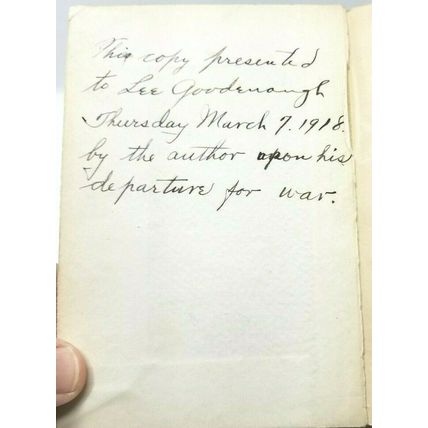 This copy presented
to Lee Goodenough
Thursday March 7. 1918.
by the author upon his
departure for war.